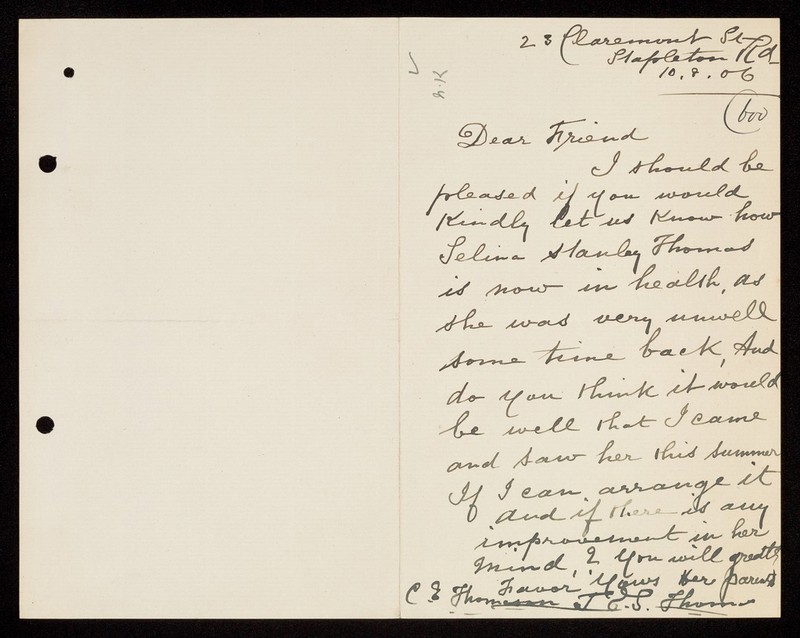 23 Claremont St
Stapleton Rd
10.8.06
Dear Friend
I should be
pleased if you would
Kindly let us Know how
Selina Stanley Thomas
is now in health, as
she was very unwell
some time back, And
do you think it would
be well that I came
and saw her this summer
If I can arrange it
and if there is any
improvement in her
mind, ? You will greatly
Favor Yours Her parents
C E Thomas J E.S. Thomas